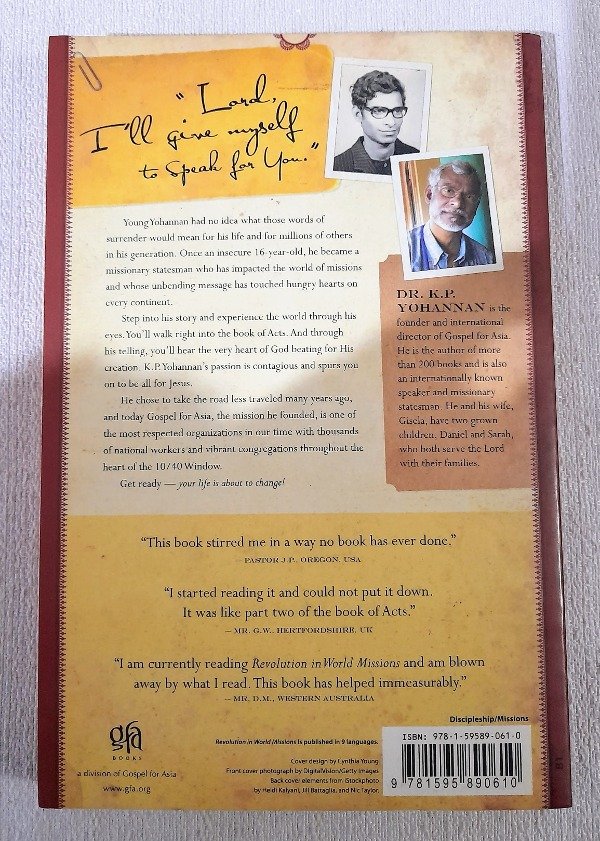 “Lord,
I'll give myself
to speak for You.”
Young Yohannan had no idea what those words of
surrender would mean for his life and for millions of others
in his generation. Once an insecure 16-year-old, he became a
missionary statesman who has impacted the world of missions
and whose unbending message has touched hungry hearts on
every continent.
Step into his story and experience the world through his
eyes. You'll walk right into the book of Acts. And through
his telling, you'll hear the very heart of God beating for His
creation. K.P. Yohannan's passion is contagious and spurs you
on to be all for Jesus.
He chose to take the road less traveled many years ago,
and today Gospel for Asia, the mission he founded, is one of
the most respected organizations in our time with thousands
of national workers and vibrant congregations throughout the
heart of the 10/40 Window.
Get ready — your life is about to change!
DR. K.P.
YOHANNAN is the
founder and international
director of Gospel for Asia.
He is the author of more
than 200 books and is also
an internationally known
speaker and missionary
statesman. He and his wife,
Gisela, have two grown
children, Daniel and Sarah,
who both serve the Lord
with their families.
“This book stirred me in a way no book has ever done.”
— PASTOR J.P., OREGON, USA
“I started reading it and could not put it down.
It was like part two of the book of Acts.”
— MR. G.W., HERTFORDSHIRE, UK
“I am currently reading Revolution in World Missions and am blown
away by what I read. This book has helped immeasurably.”
— MR. D.M., WESTERN AUSTRALIA
gfa
BOOKS
a division of Gospel for Asia
www.gfa.org
Revolution in World Missions is published in 9 languages.
Cover design by Cynthia Young
Front cover photograph by DigitalVision/Getty Images
Back cover elements from iStockphoto
by Heidi Kalyani, Jill Battaglia, and Nic Taylor.
Discipleship/Missions
ISBN: 978-1-59589-061-0
9 781595 890610